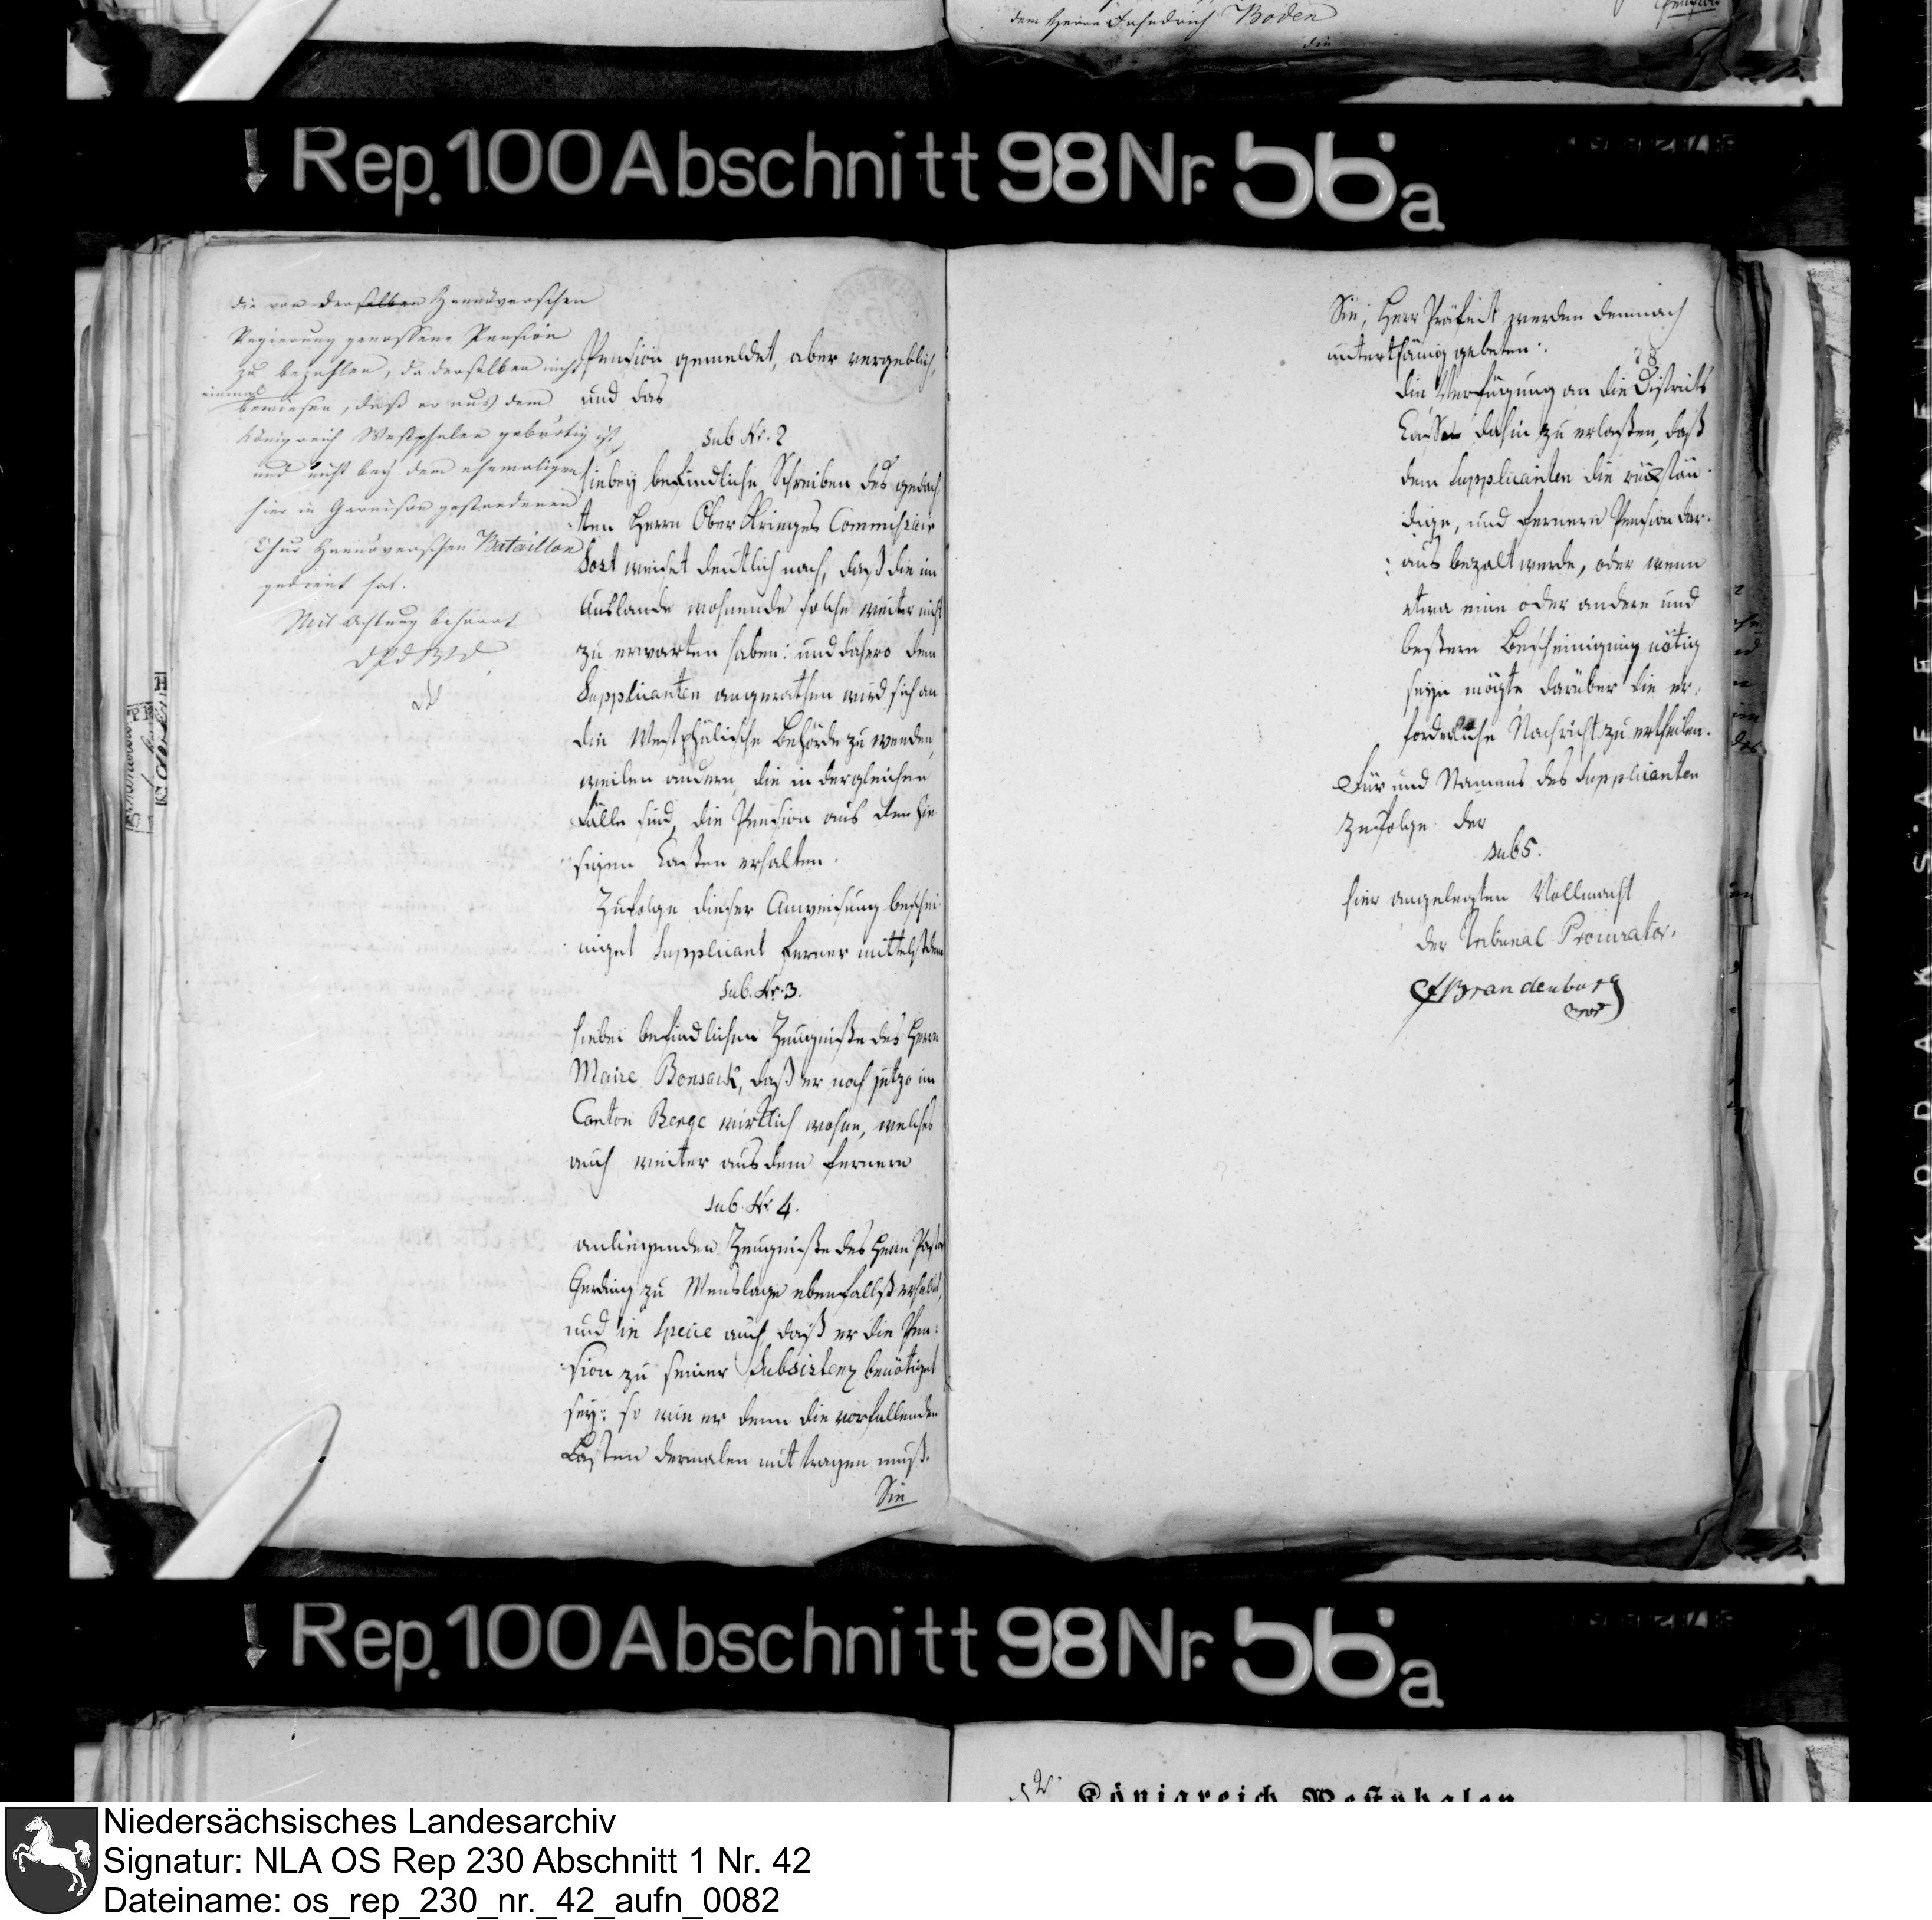 dem Herrn Friedrich Boden
die
Rep. 100 Abschnitt 98 Nr. 56a
die von derselben Hannöverschen
Regierung genossene Pension
zu bezahlen, da derselbe nicht
einmal
bewiesen, daß er aus dem
Königreich Westphalen gebürtig ist,
und nicht bey dem ehemaligen
hier in Garnison gestandenen
Chur Hannoverschen Bataillon
gedient hat.
Mit Achtung beharret
Pension gemeldet, aber vergeblich,
und das
sub Nr. 2
hiebey befindliche Schreiben des gedach
ten Herrn Ober Krieges Commissair
weiset deutlich nach, daß die im
Auslande wohnende solche weiter nicht
zu erwarten haben: und dahero dem
Supplicanten angerathen wird sich an
die Westphälische Behörde zu wenden,
weilen andern, die in dergleichen
Fälle sind, die Pension aus den hie
sigen Cassen erhalten.
Zufolge dieser Anweisung beschei
niget Supplicant ferner mittelst dem
sub. Nr. 3.
hiebei befindlichen Zeugnisse des Herrn
Maire Bonsack, daß er noch jetzo im
Canton Berge wirklich wohne, welches
auch weiter aus dem fernern
sub. Nr. 4.
anliegenden Zeugnisse des Herrn Pastor
Gerding zu Menslage ebenfallß erhellet,
und in specie auch, daß er die Pen:
sion zu seiner Subsistenz benötiget
sey: so wie er denn die vorfallenden
Lasten dermalen mit tragen muß.
Sie
Sie, Herr Präfect werden demnach
unterthänig gebeten:
28
die Verfügung an die Districts
Casse dahin zu erlaßen, daß
dem Supplicanten die rückstän
dige, und fernere Pension dar:
aus bezalt werde, oder wenn
etwa eine oder andere und
beßere Bescheinigung nötig
seyn mögte darüber die er:
forderliche Nachricht zu ertheilen.
Für und Namens des Supplicanten
zufolge der
sub 5.
hier angelegten Vollmacht
der Tribunal Procurator.
Brandenburg
Rep. 100 Abschnitt 98 Nr. 56a
Königreich Westphalen
Niedersächsisches Landesarchiv
Signatur: NLA OS Rep 230 Abschnitt 1 Nr. 42
Dateiname: os_rep_230_nr._42_aufn_0082
KODAK SAFETY FILM